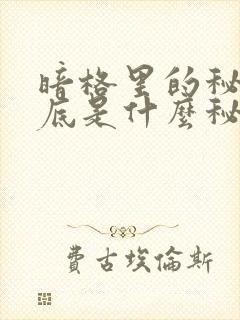 暗格里的秘
底是什麼秘
費古埃倫斯